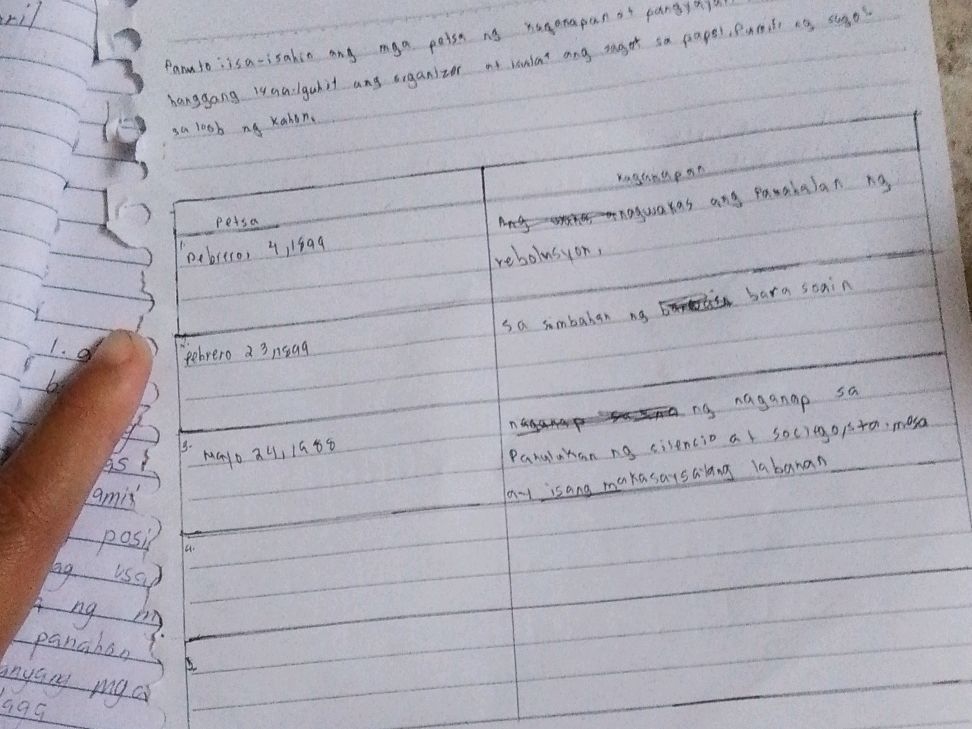 ril
Panuto: isa-isahin ang mga petsa ng kaganapan at
hanggang ang organizer at isulat ang sagot sa papel. Pumili ng sagot
sa loob ng kahon.
Petsa
kaganapan
1. Pebrero, 4, 1899
nagwakas ang Panahalan ng
rebolusyon,
2. Pebrero 23, 1899
sa simbahan ng bara soain
3. Mayo 24, 1988
ng naganap sa
Panulukan ng cilencio at sociego, sta. mesa
ay isang makasaysalang labanan
4.
5.
1. a
b
as
amin
posi
ag isa
ng m
panahon
anyang mga